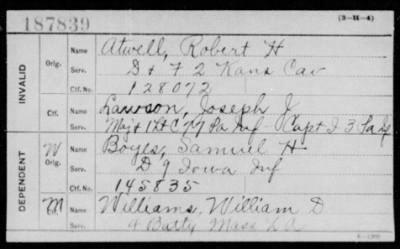 187839
(3-H-4)
INVALID
Orig.
Name Atwell, Robert H
Serv. D & F 2 Kans Cav
Ctf. No. 128072
Name Lawson, Joseph J
Serv. Maj & 1 Lt C 77 Pa Inf Capt I 3 Pa
DEPENDENT
W
Orig. Name Boyes, Samuel H
Serv. D 9 Iowa Inf
Ctf. No. 145835
M
Name Williams, William D
4 Batty Mass L A